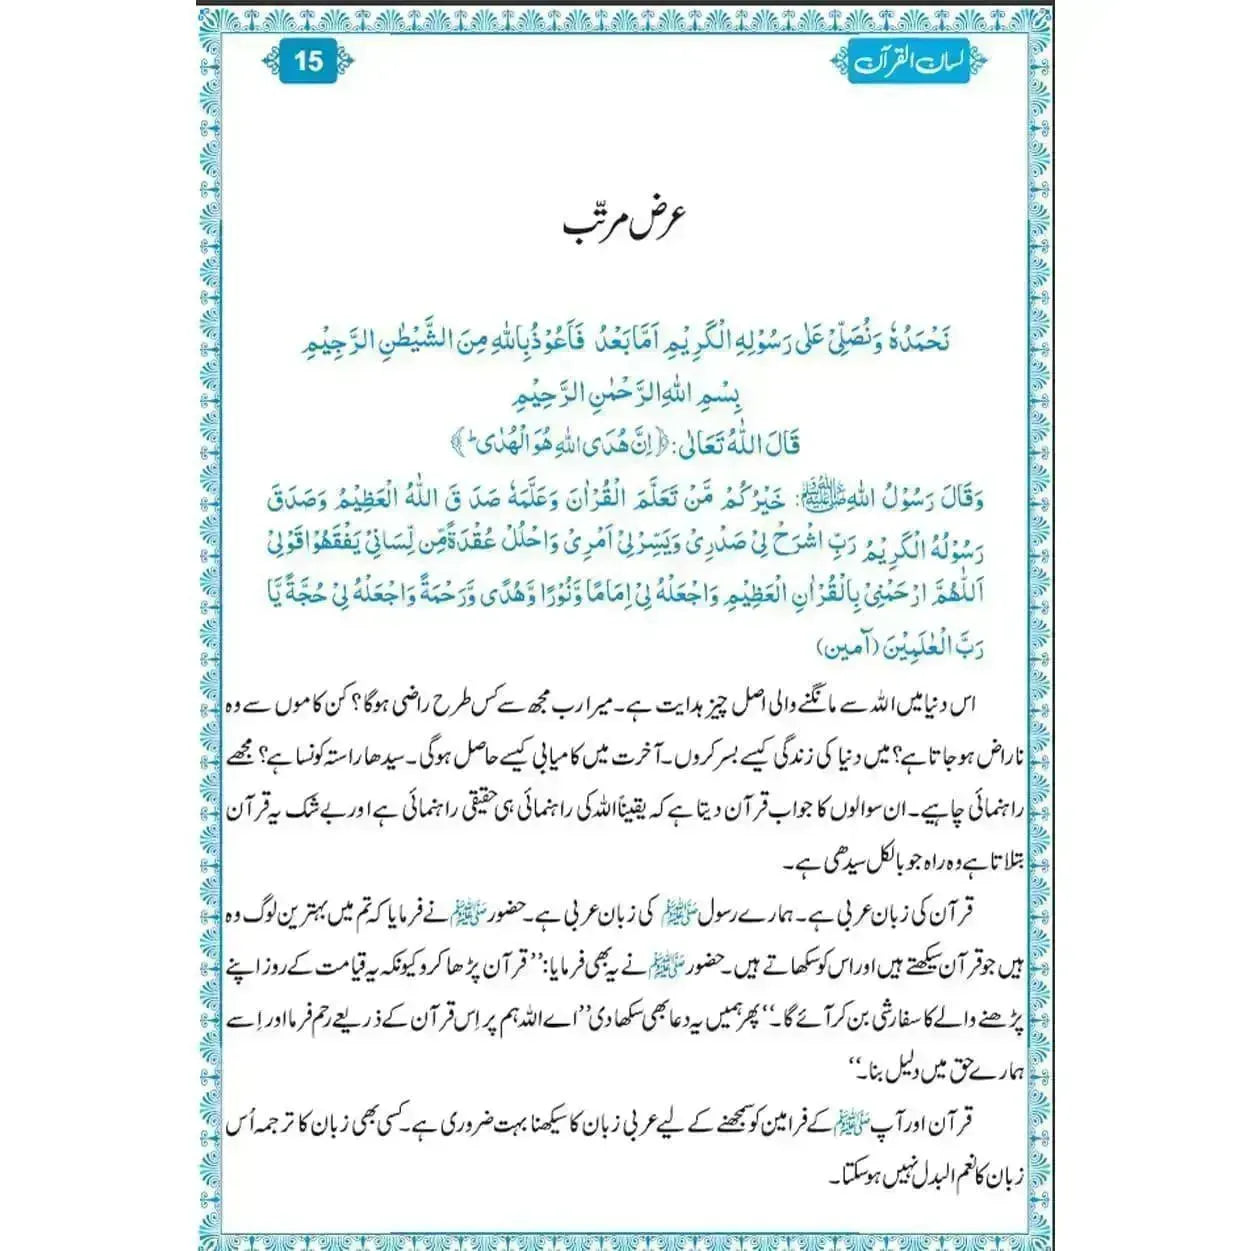 لسان القرآن
15
عرض مرتّب
نَحْمَدُهٗ وَنُصَلِّیْ عَلٰی رَسُوْلِهِ الْکَرِیْمِ اَمَّا بَعْدُ فَاَعُوْذُ بِاللّٰهِ مِنَ الشَّیْطٰنِ الرَّجِیْمِ
بِسْمِ اللّٰهِ الرَّحْمٰنِ الرَّحِیْمِ
قَالَ اللّٰهُ تَعَالٰی: ﴿اِنَّ هُدَی اللّٰهِ هُوَ الْهُدٰی ؕ﴾
وَقَالَ رَسُوْلُ اللّٰهِ ﷺ: خَیْرُکُمْ مَّنْ تَعَلَّمَ الْقُرْاٰنَ وَعَلَّمَهٗ صَدَقَ اللّٰهُ الْعَظِیْمُ وَصَدَقَ
رَسُوْلُهُ الْکَرِیْمُ رَبِّ اشْرَحْ لِیْ صَدْرِیْ وَیَسِّرْ لِیْ اَمْرِیْ وَاحْلُلْ عُقْدَةً مِّنْ لِّسَانِیْ یَفْقَهُوْا قَوْلِیْ
اَللّٰهُمَّ ارْحَمْنِیْ بِالْقُرْاٰنِ الْعَظِیْمِ وَاجْعَلْهُ لِیْ اِمَامًا وَّنُوْرًا وَّهُدًی وَّرَحْمَةً وَاجْعَلْهُ لِیْ حُجَّةً یَّا
رَبَّ الْعٰلَمِیْنَ (آمین)
اس دنیا میں اللہ سے مانگنے والی اصل چیز ہدایت ہے۔ میرا رب مجھ سے کس طرح راضی ہوگا؟ کن کاموں سے وہ
ناراض ہو جاتا ہے؟ میں دنیا کی زندگی کیسے بسر کروں۔ آخرت میں کامیابی کیسے حاصل ہوگی۔ سیدھا راستہ کونسا ہے؟ مجھے
راہنمائی چاہیے۔ ان سوالوں کا جواب قرآن دیتا ہے کہ یقیناً اللہ کی راہنمائی ہی حقیقی راہنمائی ہے اور بے شک یہ قرآن
بتلاتا ہے وہ راہ جو بالکل سیدھی ہے۔
قرآن کی زبان عربی ہے۔ ہمارے رسول ﷺ کی زبان عربی ہے۔ حضور ﷺ نے فرمایا کہ تم میں بہترین لوگ وہ
ہیں جو قرآن سیکھتے ہیں اور اس کو سکھاتے ہیں۔ حضور ﷺ نے یہ بھی فرمایا: ’’قرآن پڑھا کرو کیونکہ یہ قیامت کے روز اپنے
پڑھنے والے کا سفارشی بن کر آئے گا۔‘‘ پھر ہمیں یہ دعا بھی سکھا دی ’’اے اللہ ہم پر اِس قرآن کے ذریعے رحم فرما اور اِسے
ہمارے حق میں دلیل بنا۔‘‘
قرآن اور آپ ﷺ کے فرامین کو سمجھنے کے لیے عربی زبان کا سیکھنا بہت ضروری ہے۔ کسی بھی زبان کا ترجمہ اُس
زبان کا نعم البدل نہیں ہو سکتا۔